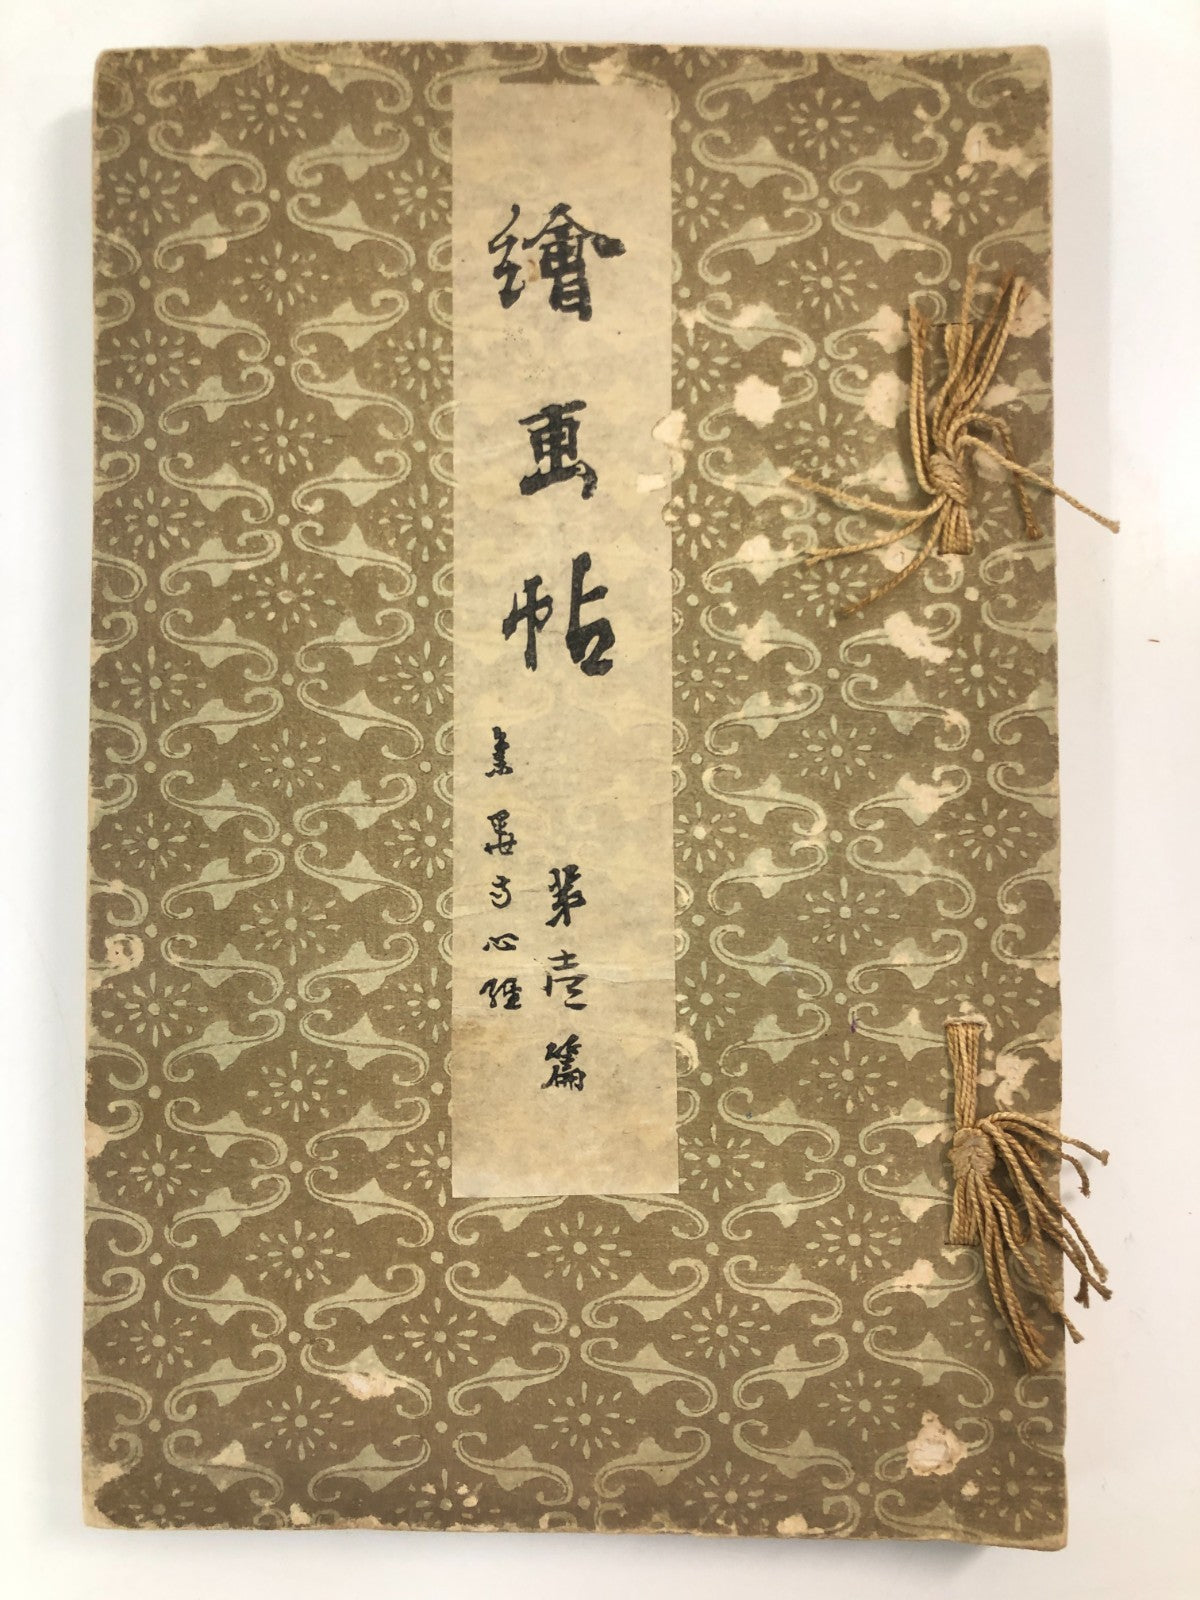 繪画帖
第壹篇
心經